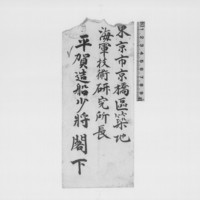 東京市京橋區築地
海軍技術研究所長
平賀造船少將閣下